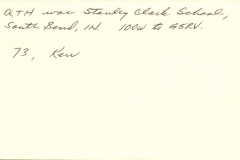 QTH was Stanley Clark School,
South Bend, IN. 100w to G5RV.
73, Ken